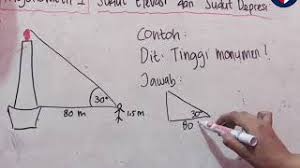 Trigonometri I Sudut Elevasi dan Sudut Depresi
Contoh:
Dit: Tinggi monumen!
Jawab:
30°
80 m
1.5 m
30°
80